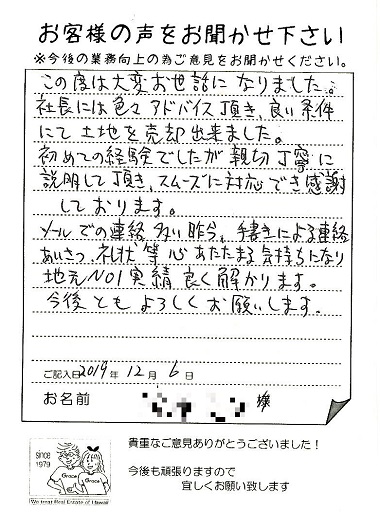 お客様の声をお聞かせ下さい
※今後の業務向上の為ご意見をお聞かせください。
この度は大変お世話になりました。
社長には色々アドバイス頂き、良い条件
にて土地を売却出来ました。
初めての経験でしたが親切丁寧に
説明して頂き、スムーズに対応でき感謝
しております。
メールでの連絡多い昨今、手書きによる連絡
あいさつ、礼状等心あたたまる気持ちになり
地元NO1実績良く解かります。
今後ともよろしくお願いします。
ご記入日2019年12月6日
お名前 様
since
1979
Grace
Grace
We treat Real Estate of Hawaii
貴重なご意見ありがとうございました！
今後も頑張りますので
宜しくお願い致します